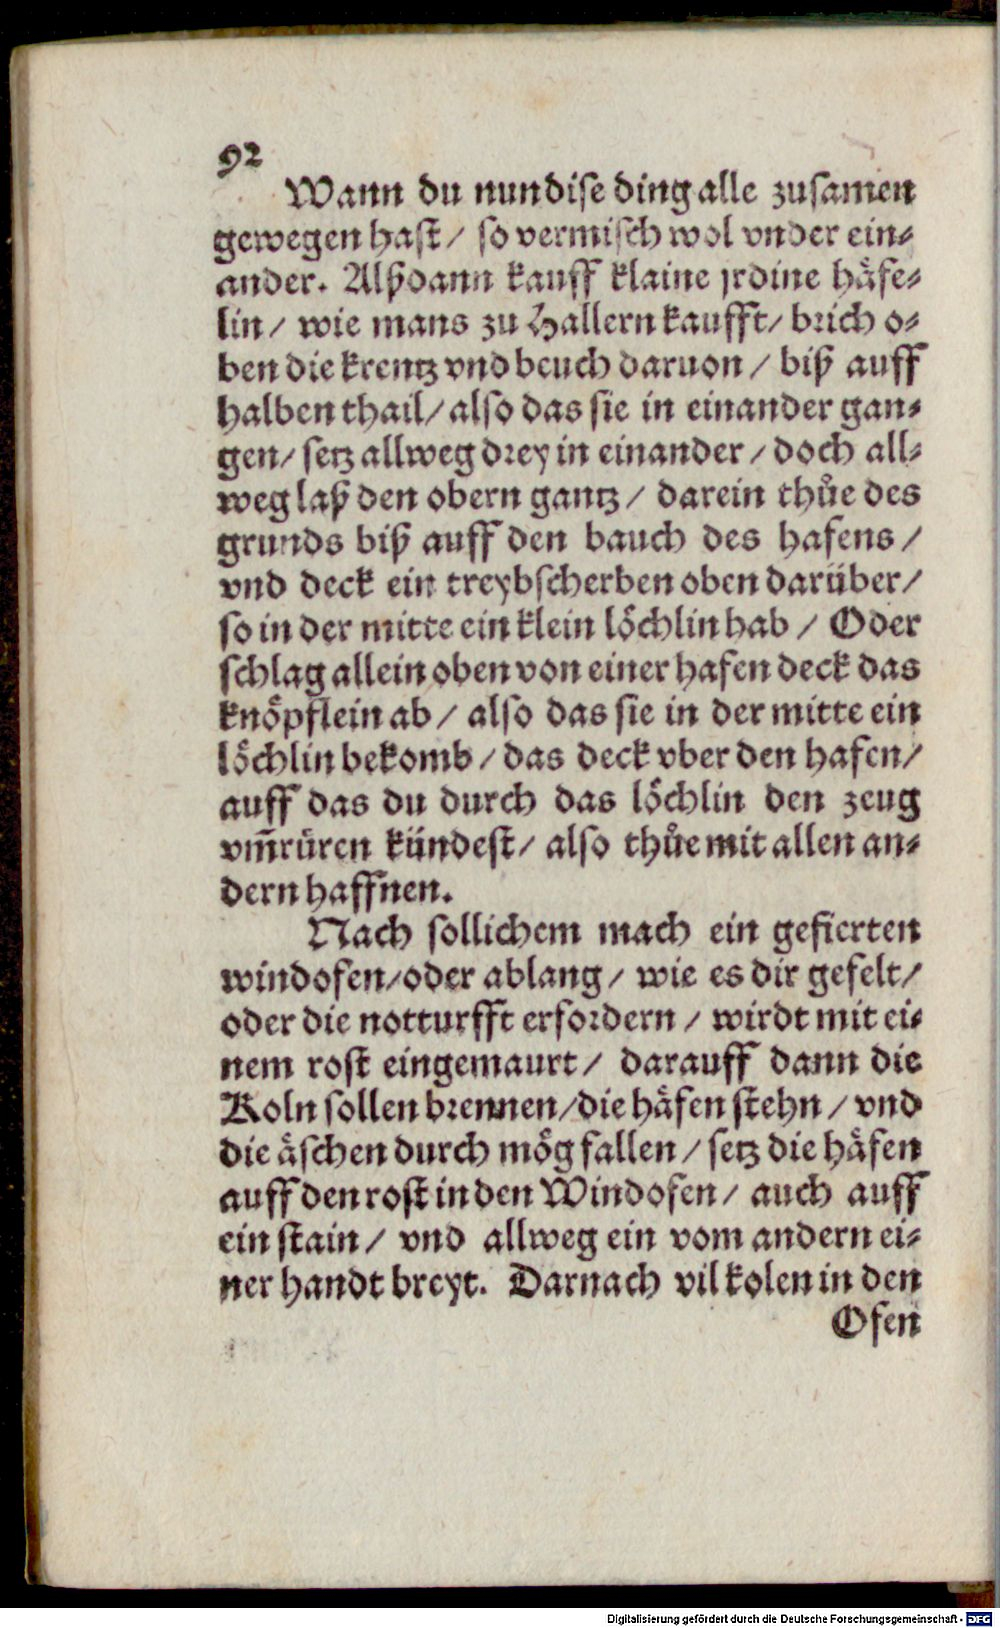 92
Wann du nun dise ding alle zusamen
gewegen hast / so vermisch wol vnder ein⸗
ander. Alßdann kauff klaine jrdine häfe⸗
lin / wie mans zu Hallern kaufft / brich o⸗
ben die krentz vnd beuch daruon / biß auff
halben thail / also das sie in einander gan⸗
gen / setz allweg drey in einander / doch all⸗
weg laß den obern gantz / darein thůe des
grunds biß auff den bauch des hafens /
vnd deck ein treybscherben oben darüber /
so in der mitte ein klein löchlin hab / Oder
schlag allein oben von einer hafen deck das
knöpflein ab / also das sie in der mitte ein
löchlin bekomb / das deck vber den hafen /
auff das du durch das löchlin den zeug
vm̄rüren kündest / also thůe mit allen an⸗
dern haffnen.
Nach sollichem mach ein gefierten
windofen / oder ablang / wie es dir gefelt /
oder die notturfft erfordern / wirdt mit ei⸗
nem rost eingemaurt / darauff dann die
Koln sollen brennen / die häfen stehn / vnd
die äschen durch mög fallen / setz die häfen
auff den rost in den Windofen / auch auff
ein stain / vnd allweg ein vom andern ei⸗
ner handt breyt. Darnach vil kolen in den
Ofen
Digitalisierung gefördert durch die Deutsche Forschungsgemeinschaft - DFG